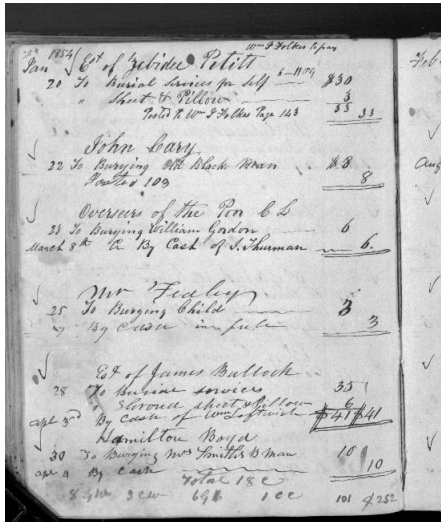 Wm J Folkes to pay
1854 Est of Zibidee Petitt
Jan 20 To Burial Services for Self $30
" Sheet & Pillow 3
Posted to Wm J Folkes Page 143 33 33
John Cary
22 To Burying Old Black Man $8
Posted 109 8
Overseers of the Poor C L
23 To Burying William Gordon 6
March 8th Cr By Cash of J. Thurman 6.
Mr Fedley
25 To Burying Child 3
By Cash in full 3
Est of James Bullock
28 To Burial services 35
Shroud sheet & Pillow 6
Apl 3rd By Cash of Wm $41 $41
Hamilton Boyd
30 To Burying Mrs Smiths B man 10
Apr 4 By Cash 10
Total 18 C
101 $252
Feb
Aug